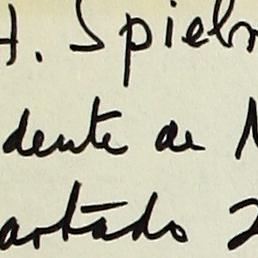 H. Spielm
dente de N
artado 2